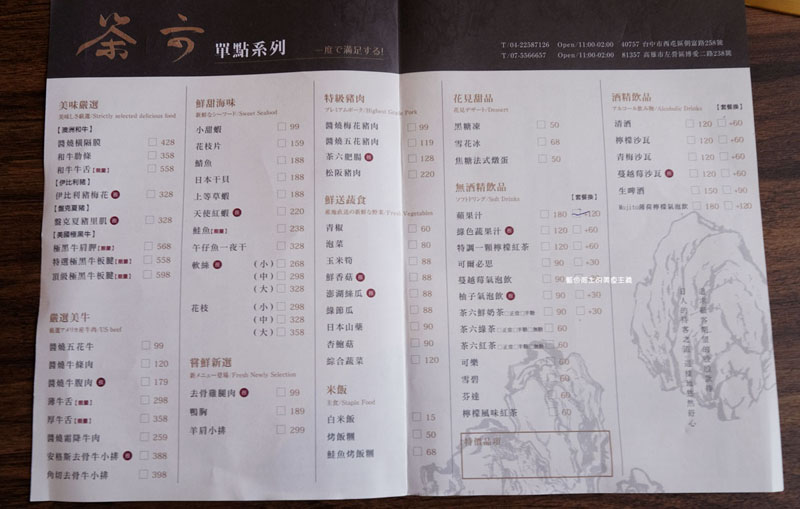 茶六
單點系列
一度で満足する!
T/04-22587126 Open/11:00-02:00 40757 台中市西屯區朝富路258號
T/07-5566657 Open/11:00-02:00 81357 高雄市左營區博愛二路238號
美味嚴選
美味しさ厳選/Strictly selected delicious food
【澳洲和牛】
醬燒橫隔膜 428
和牛肋條 358
和牛牛舌【限量】 558
【伊比利豬】
伊比利豬梅花 328
【盤克夏豬】
盤克夏豬里肌 328
【美國極黑牛】
極黑牛肩胛【限量】 568
特選極黑牛板腱【限量】 598
頂級極黑牛板腱【限量】 598
嚴選美牛
厳選アメリカ産牛肉/US beef
醬燒五花牛 99
醬燒牛條肉 120
醬燒牛腹肉 179
薄牛舌【限量】 298
厚牛舌【限量】 358
醬燒霜降牛肉 259
安格斯去骨牛小排 388
角切去骨牛小排 398
鮮甜海味
新鮮なシーフード/Sweet Seafood
小甜蝦 99
花枝片 159
鯖魚 188
日本干貝 188
上等草蝦 188
天使紅蝦 220
鮭魚【限量】 238
午仔魚一夜干 328
軟絲 (小) 268
(中) 298
(大) 328
花枝 (小) 298
(中) 328
(大) 358
嘗鮮新選
新メニュー登場/Fresh Newly Selection
去骨雞腿肉 99
鴨胸 189
羊肩小排 299
特級豬肉
プレミアムポーク/Highest Grade Pork
醬燒梅花豬肉 99
醬燒五花豬肉 119
茶六肥腸 128
松阪豬肉 220
鮮送蔬食
産地直送の新鮮な野菜/Fresh Vegetables
青椒 60
泡菜 80
玉米筍 88
鮮香菇 88
澎湖絲瓜 88
綠節瓜 88
日本山藥 90
杏鮑菇 90
綜合蔬菜 120
米飯
主食/Staple Food
白米飯 15
烤飯糰 50
鮭魚烤飯糰 68
花見甜品
花見デザート/Dessert
黑糖凍 50
雪花冰 68
焦糖法式燉蛋 50
無酒精飲品
ソフトドリンク/Soft Drinks
【套餐換】
蘋果汁 180 +120
綠色蔬果汁 120 +60
特調一顆檸檬紅茶 120 +60
可爾必思 90 +30
蔓越莓氣泡飲 90 +30
柚子氣泡飲 90 +30
茶六鮮奶茶 90 +30
茶六綠茶 60
茶六紅茶 60
可樂 60
雪碧 60
芬達 60
檸檬風味紅茶 60
特價品項
酒精飲品
アルコール飲み物/Alcoholic Drinks
【套餐換】
清酒 120 +60
檸檬沙瓦 120 +60
青梅沙瓦 120 +60
蔓越莓沙瓦 120 +60
生啤酒 150 +90
Mojito薄荷檸檬氣泡飲 180 +120